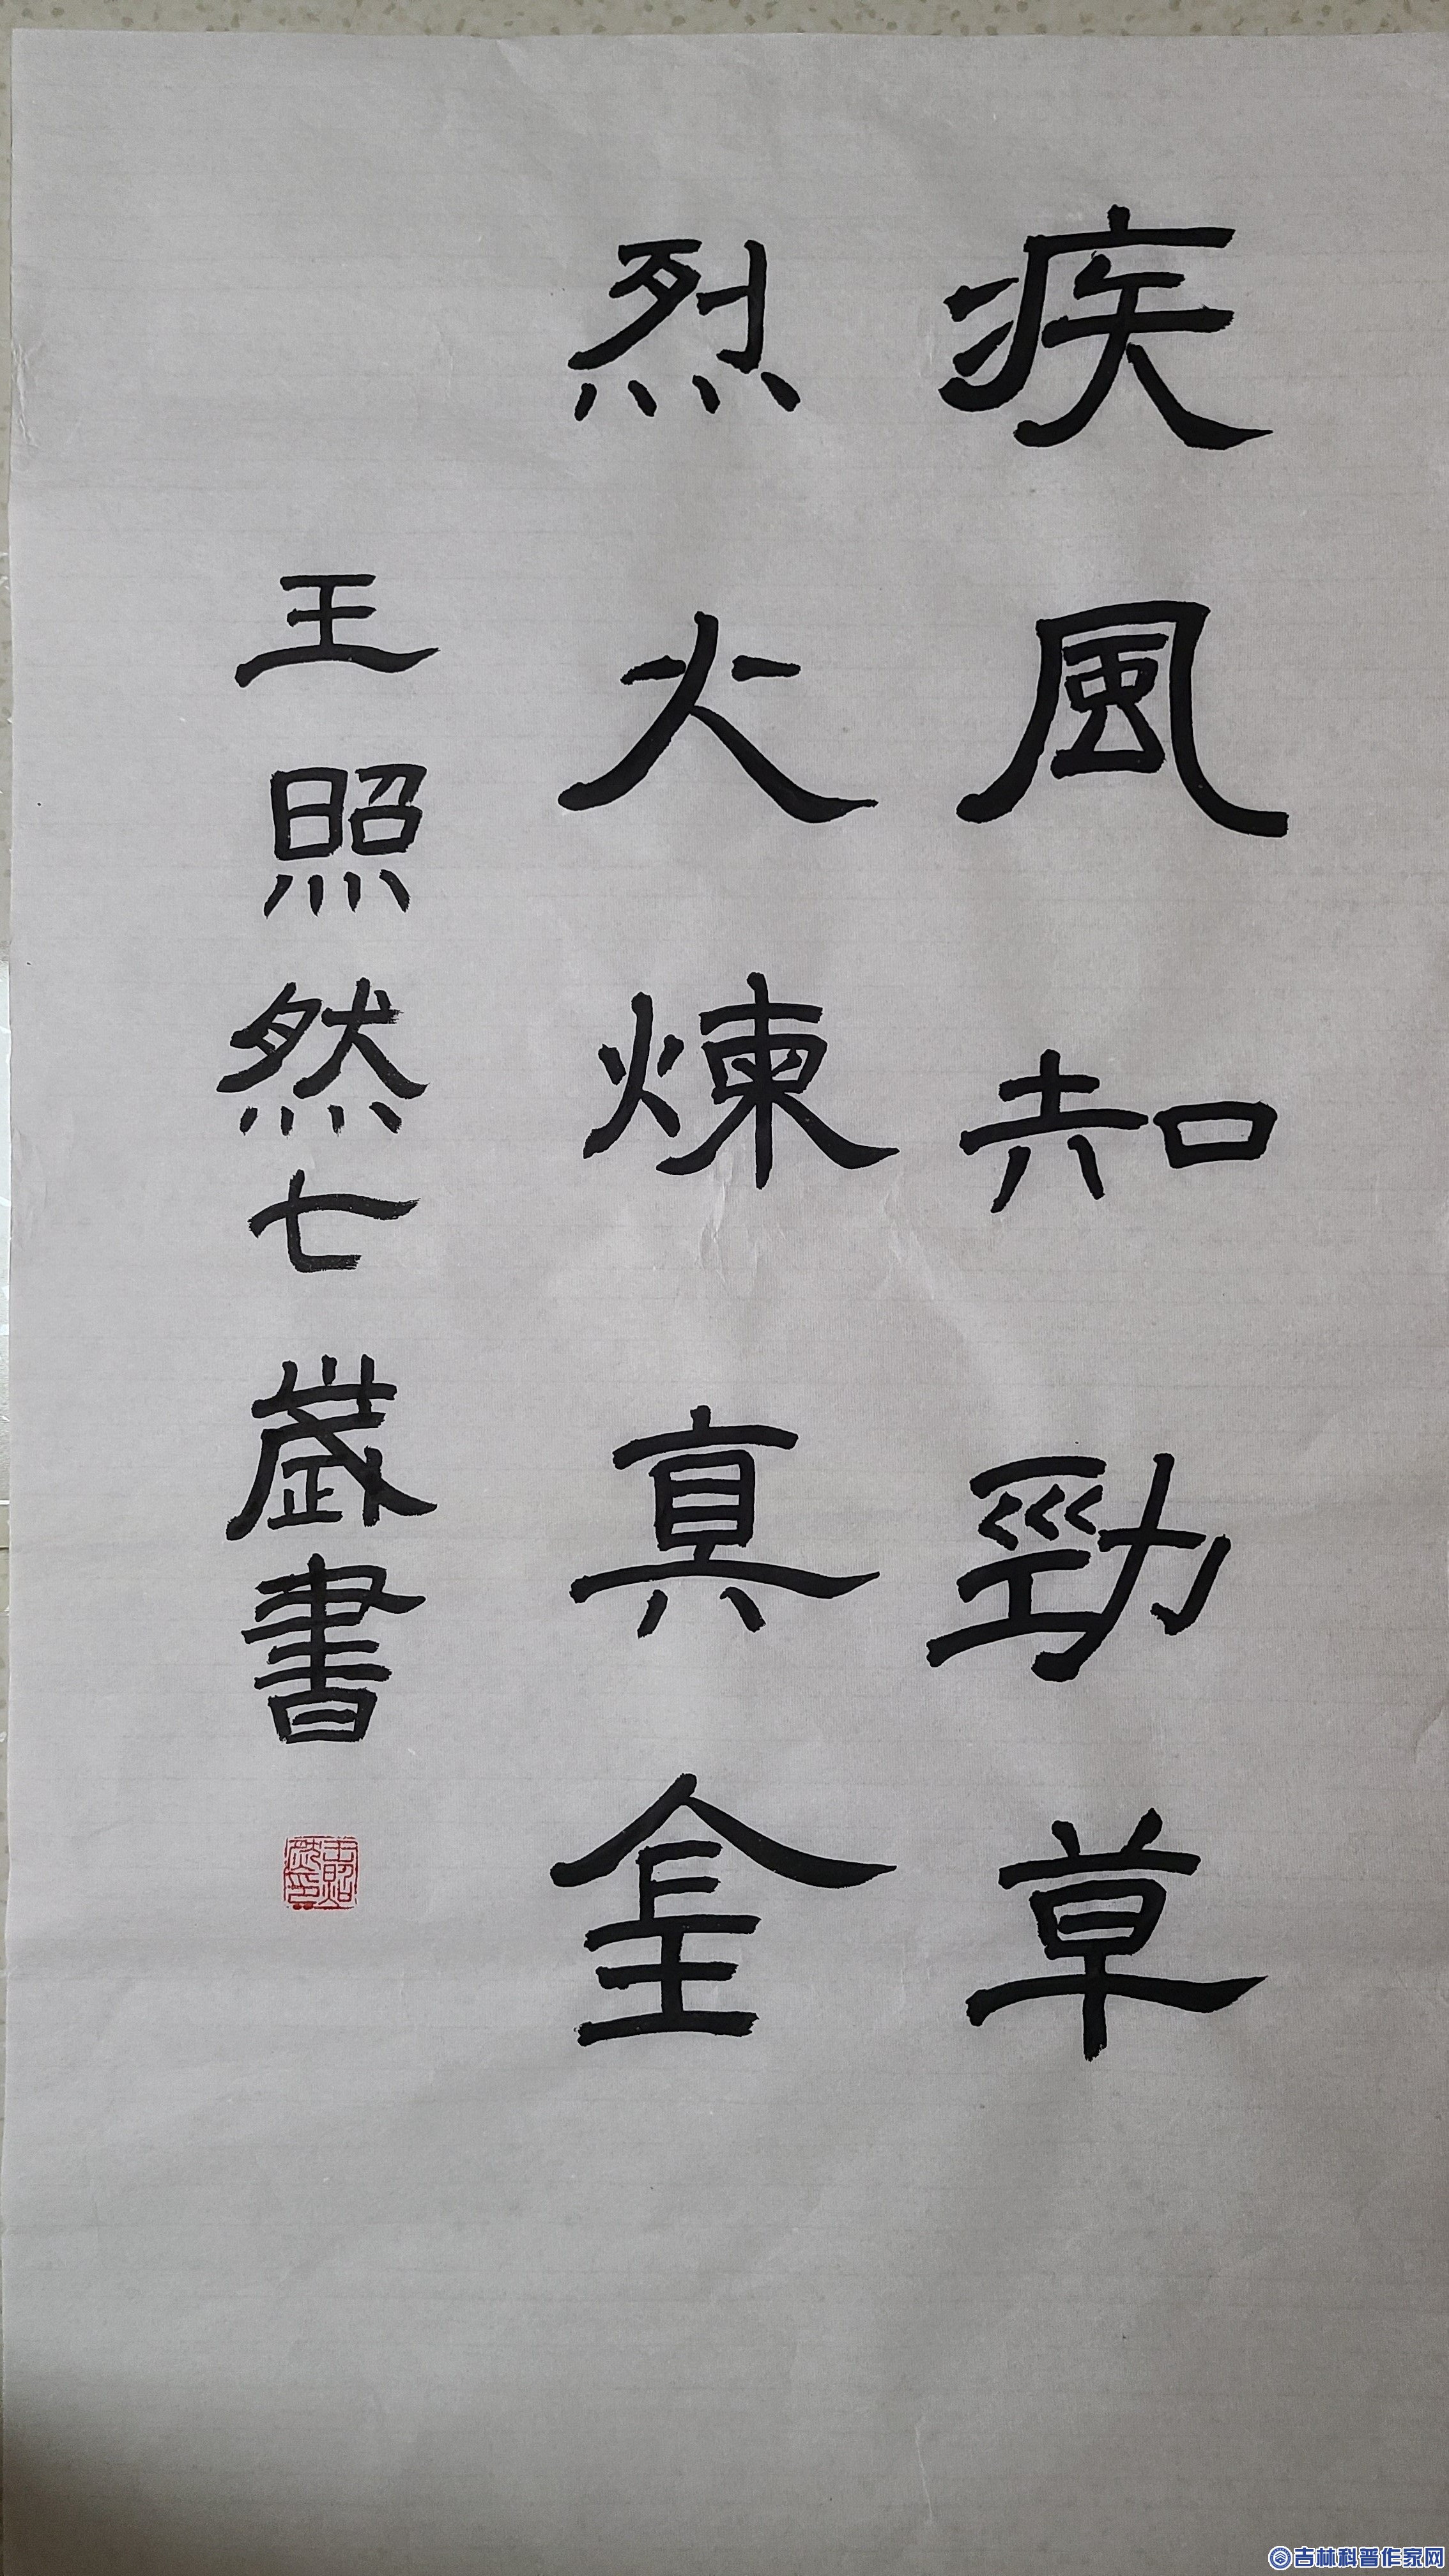 疾風知勁草
烈火煉真金
王照然七歲書
吉林科普作家网